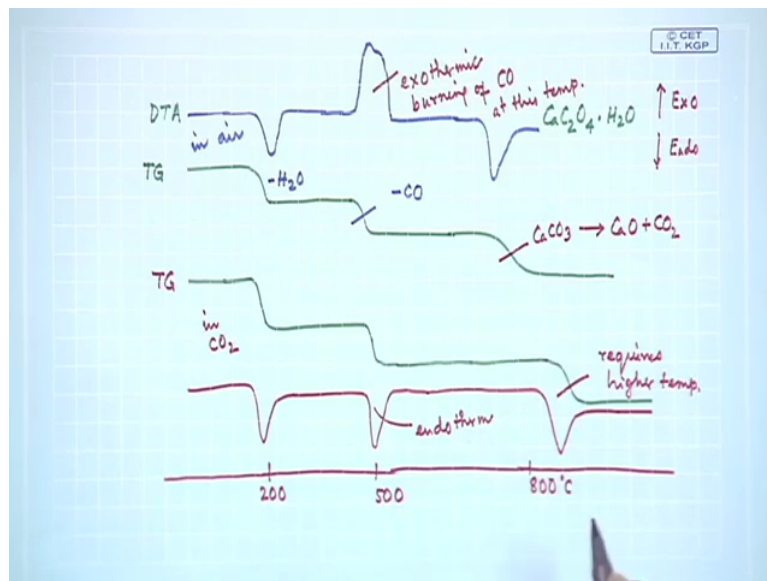 © CET
I.I.T. KGP
exothermic
burning of CO
at this temp.
DTA
in air
CaC₂O₄·H₂O
↑ Exo
↓ Endo
TG
-H₂O
-CO
CaCO₃ → CaO + CO₂
TG
in
CO₂
requires
higher temp.
endotherm
200
500
800°C